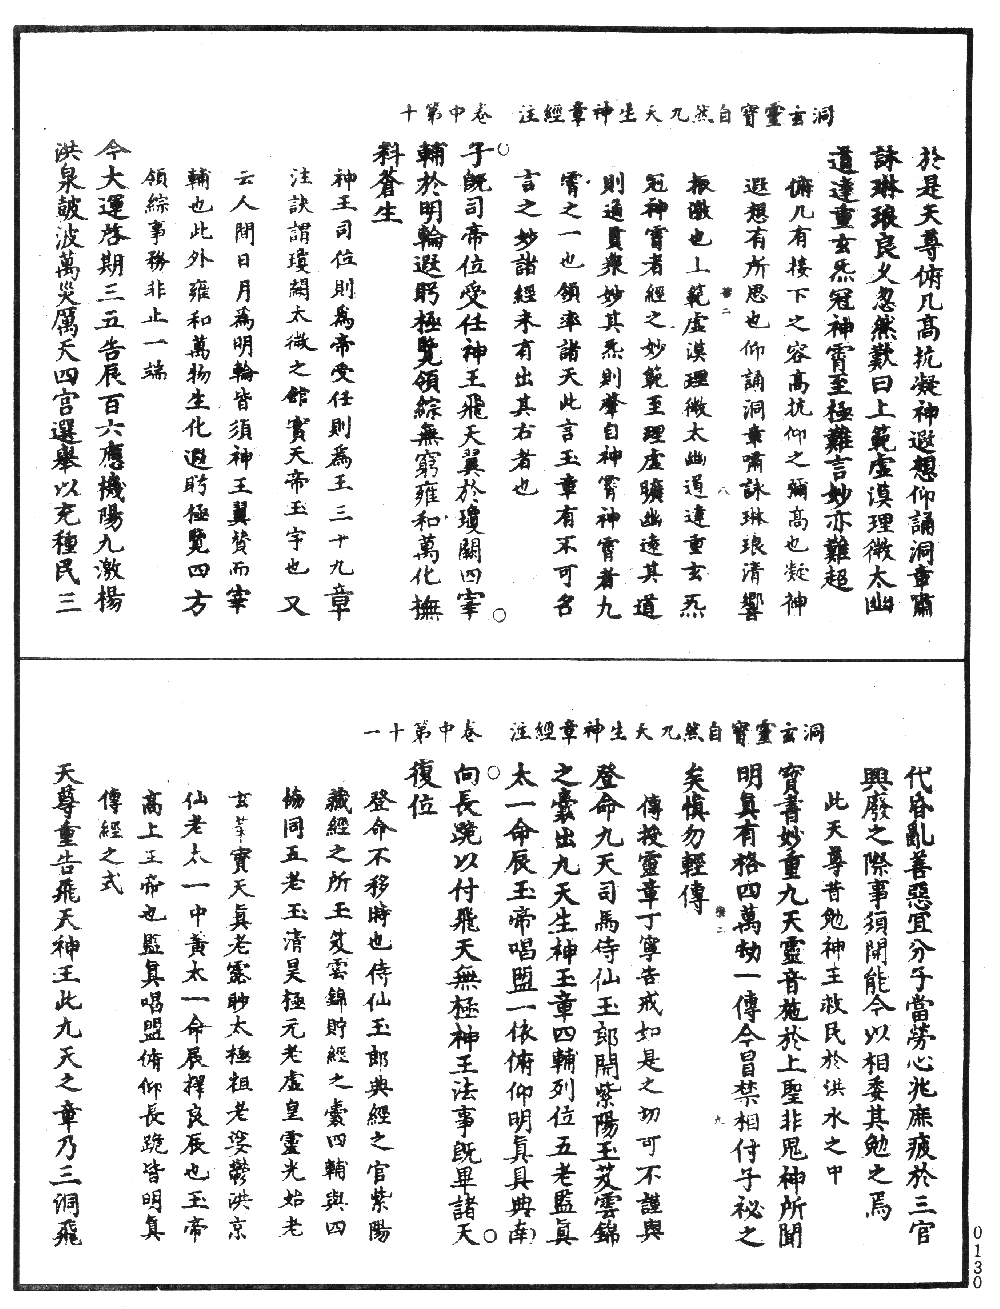 洞玄靈寳自然九天生神章經注　卷中第十
於是天尊俯几高抗凝神遐想仰誦洞章嘯
詠琳琅良久忽然歎曰上範虛漠理微太幽
道達重玄炁冠神霄至極難言妙亦難超
俯几有接下之容高抗仰之彌高也凝神
遐想有所思也仰誦洞章嘯詠琳琅清響
振激也上範虛漠理微太幽道達重玄炁
冠神霄者經之妙範至理虛曠幽遠其道
則通貫衆妙其炁則聲自神霄神霄者九
霄之一也領率諸天此言玉章有不可名
言之妙諸經未有出其右者也
子旣司帝位受任神王飛天翼於瓊闕四宰
輔於明輪遐眄極覽領綜無窮雍和萬化撫
料蒼生
神王司位則爲帝受任則爲王三十九章
注訣謂瓊闕太微之館賓天帝玉宇也又
云人間日月爲明輪皆須神王翼贊而宰
輔也此外雍和萬物生化遐眄極覽四方
領綜事務非止一端
今大運啓期三五告辰百六應機陽九激楊
洪泉皷波萬災厲天四宮選舉以充種民三
洞玄靈寳自然九天生神章經注　卷中第十一
代昏亂善惡宜分子當勞心兆庶疲於三官
興廢之際事須開能今以相委其勉之焉
此天尊昔勉神王救民於洪水之中
寳書妙重九天靈音施於上聖非鬼神所聞
明眞有格四萬劫一傳今冒禁相付子祕之
矣愼勿輕傳
傳授靈章丁寧告戒如是之切可不謹與
登命九天司馬侍仙玉郎開紫陽玉笈雲錦
之囊出九天生神玉章四輔列位五老監眞
太一命辰玉帝唱盟一依俯仰明眞具典南
向長跪以付飛天無極神王法事旣畢諸天
復位
登命不移時也侍仙玉郎典經之官紫陽
藏經之所玉笈雲錦貯經之囊四輔與四
協同五老玉清昊極元老虛皇靈光始老
玄華寳天眞老 太極祖老娑鬱洪京
仙老太一中黃太一命辰擇良辰也玉帝
高上玉帝也監眞唱盟俯仰長跪皆明眞
傳經之式
天尊重告飛天神王此九天之章乃三洞飛
0130